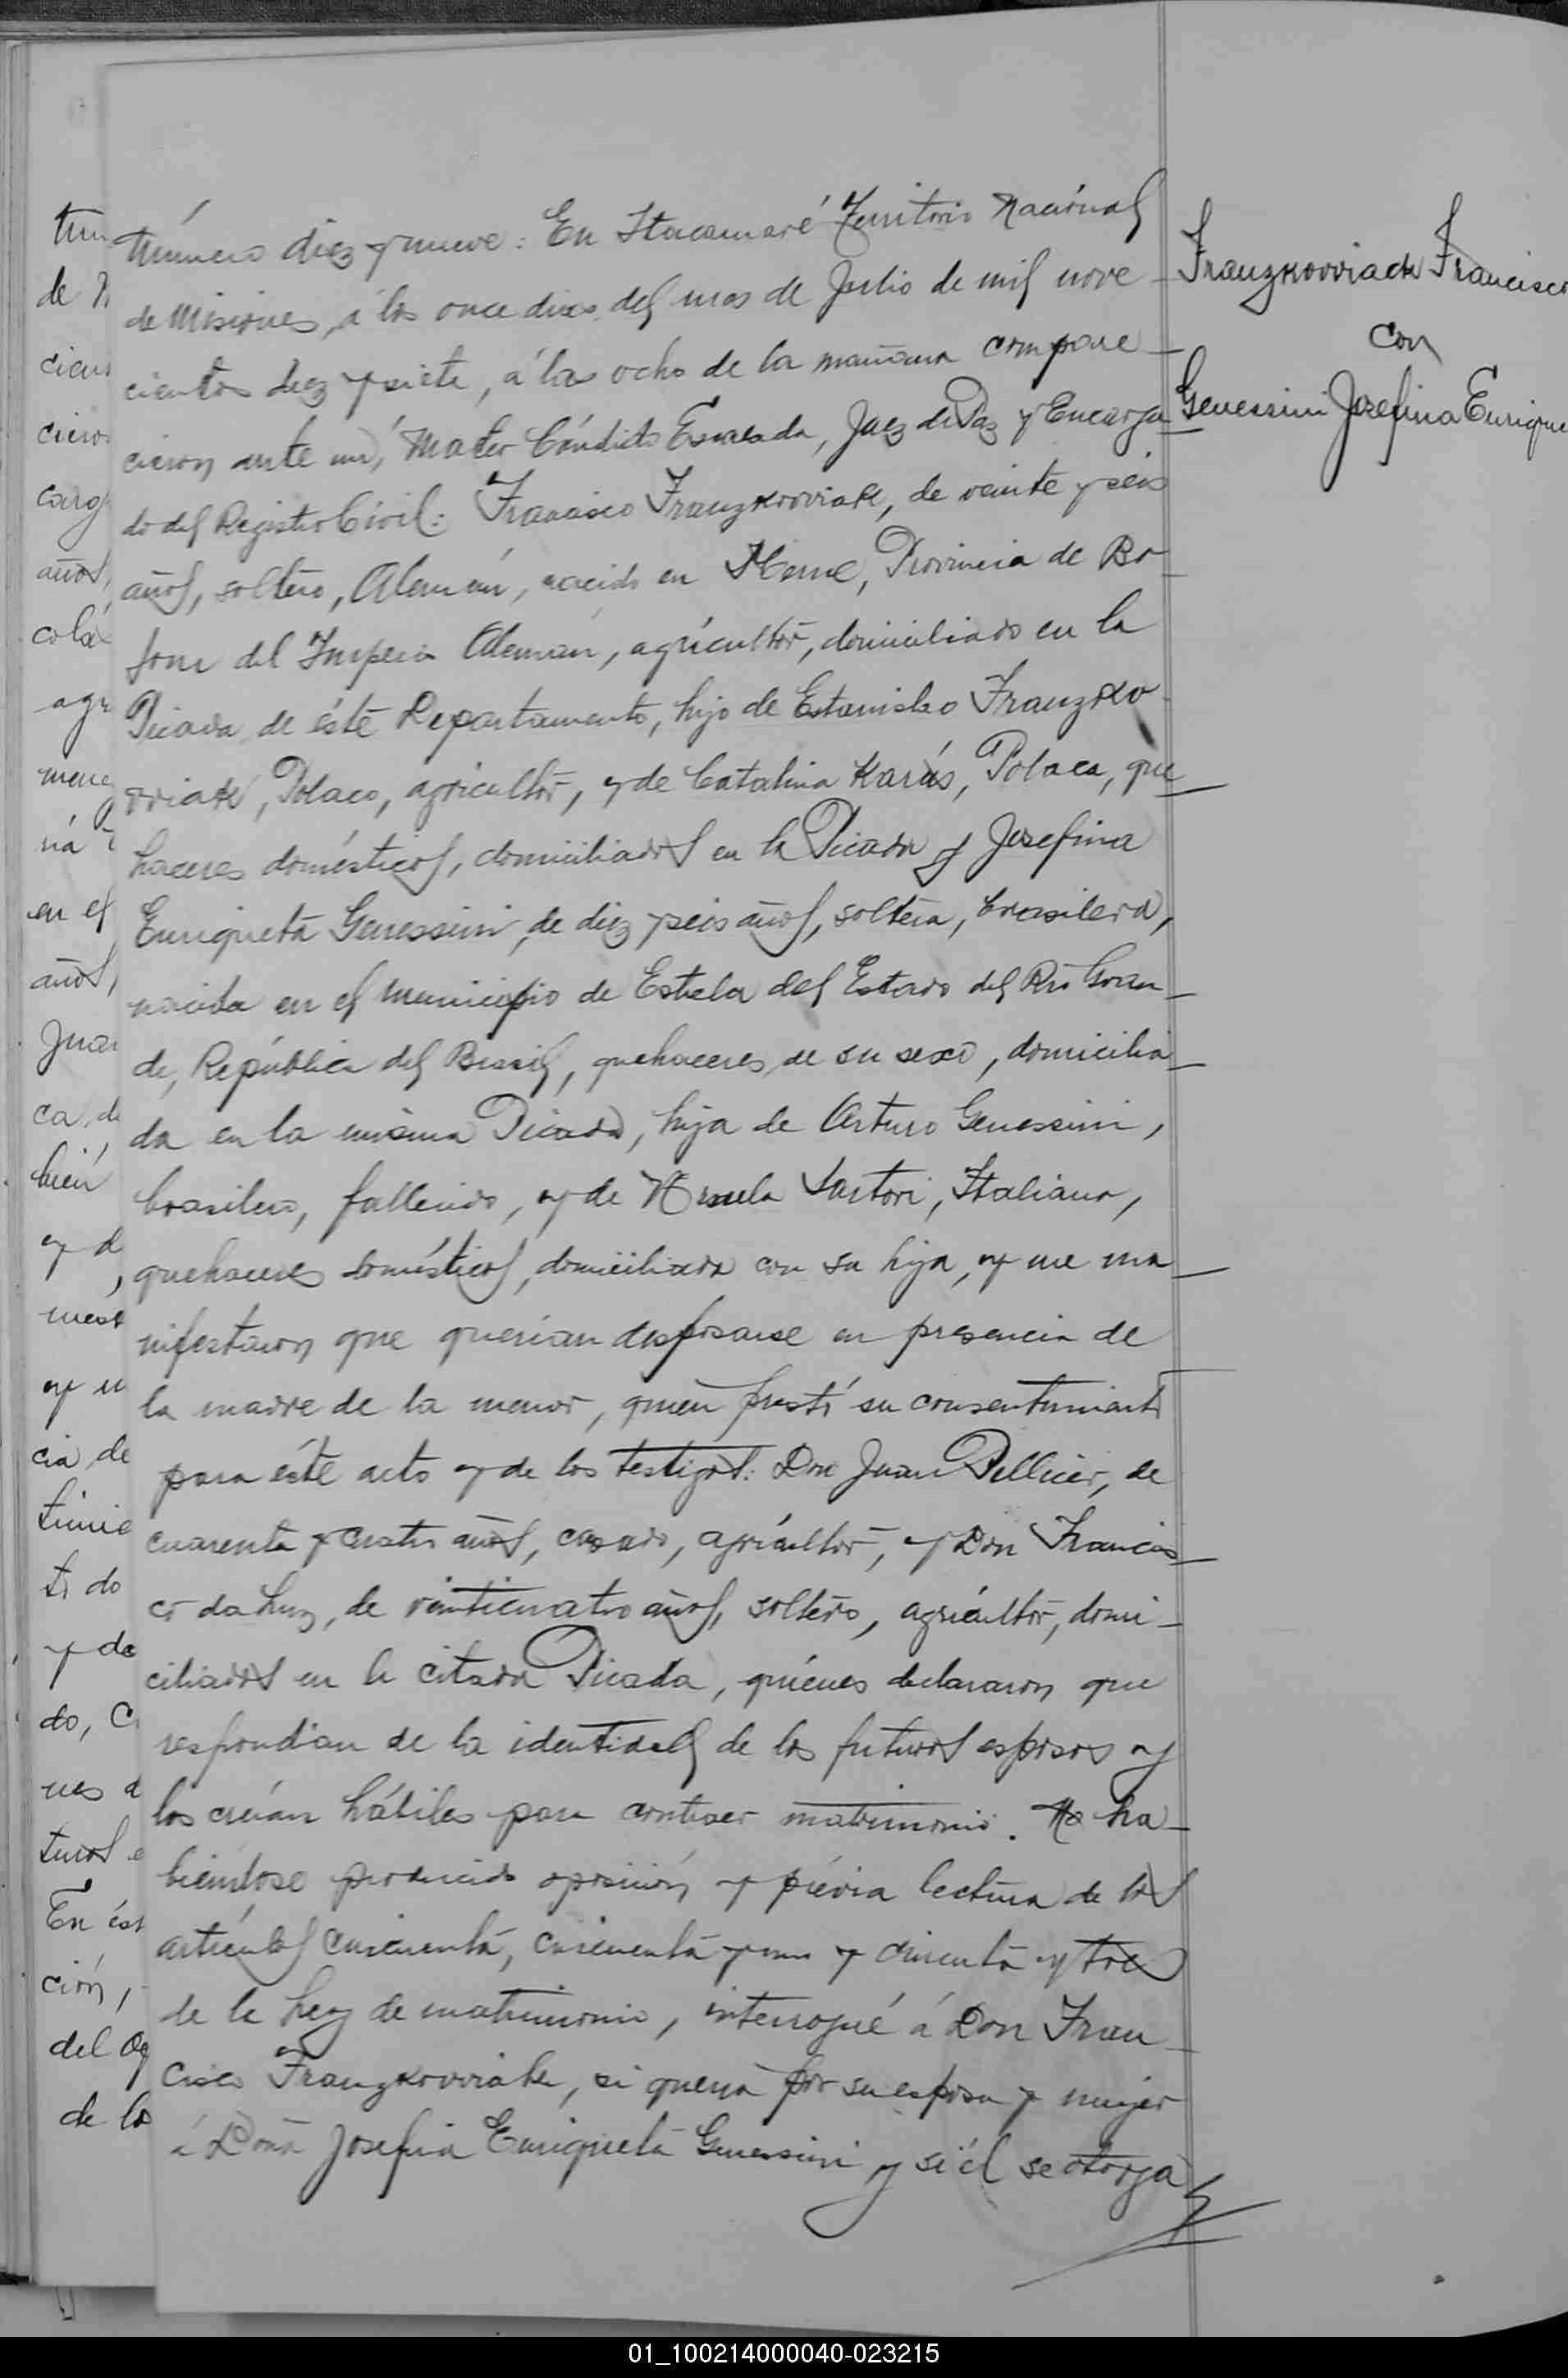 Número diez y nueve: En Itacaruaré Territorio Nacional
de Misiones, á los once dias del mes de Julio de mil nove-
cientos diez y siete, á las ocho de la mañana compare-
cieron ante mí, Cándido Juez de Paz y Encarga-
do del Registro Civil: Francisco Franzkowiak, de veinte y seis
años, soltero, Alemán, nacido en Herne, Provincia de
del Imperio Alemán, agricultor, domiciliado en la
Picada de éste Departamento, hijo de Estanislao Franzko-
wiak, Polaco, agricultor, y de Catalina Karás, Polaca, que-
haceres domésticos, domiciliados en la Picada y Josefina
Enriqueta Genessini, de diez y seis años, soltera, brasilera,
nacida en el municipio de Estrela del Estado del Rio Gran-
de, República del Brasil, quehaceres de su sexo, domicilia-
da en la misma Picada, hija de Arturo Genessini,
brasilero, fallecido, y de Ursula Sartori, Italiana,
quehaceres domésticos, domiciliada con su hija, y me ma-
nifestaron que querían desposarse en presencia de
la madre de la menor, quien prestó su consentimiento
para éste acto y de los testigos: Don Juan Pellicer, de
cuarenta y cuatro años, casado, agricultor, y Don Francis-
co da Luz, de veinticuatro años, soltero, agricultor, domi-
ciliados en la citada Picada, quiénes declararon que
respondían de la identidad de los futuros esposos y
los creían hábiles para contraer matrimonio. No ha-
biéndose producido oposición y prévia lectura de los
artículos cincuenta, cincuenta y uno y cincuenta y tres
de la Ley de matrimonio, interrogué á Don Fran-
cisco Franzkowiak, si quería por su esposa y mujer
á Doña Josefina Enriqueta Genessini y si él se otorga
Franzkowiak Francisco
con
Genessini Josefina Enrique
01_100214000040-023215